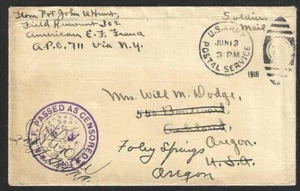 From Pvt John W Hunt
Field Remount 302
American E.F. France
A.P.O. 711 Via N.Y.
Soldiers
Mail
U.S. ARMY
POSTAL SERVICE
JUN 13
3 PM
1918
Mrs. Will M. Dodge,
Oakland,
Oregon.
Foley Springs
U.S.A.
Oregon
A.E.F. PASSED AS CENSORED